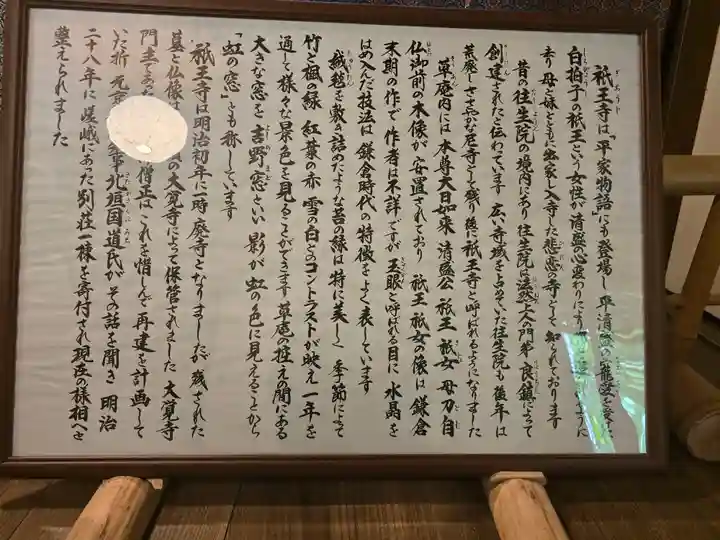 祇王寺は「平家物語」にも登場し 平清盛の
白拍子の祇王という女性が清盛の心変わりにより
去り母と妹とともに出家し入寺した悲恋の寺として知られております
昔の往生院の境内にあり往生院は法然上人の門弟 良鎮によって
創建されたと伝わっています 広い寺域を占めていた往生院も後年は
荒廃しささやかな尼寺として残り後に祇王寺と呼ばれるようになりました
草庵内には 本尊大日如来 清盛公 祇王 祇女 母刀自
仏御前の木像が安置されており 祇王 祇女の像は 鎌倉
末期の作で作者は不詳ですが玉眼と呼ばれる目に 水晶を
はめ込んだ技法は鎌倉時代の特徴をよく表しています
絨毯を敷き詰めたような苔の緑は特に美しく 季節によって
竹と楓の緑 紅葉の赤 雪の白とのコントラストが映え一年を
通して様々な景色を見ることができます 草庵の控えの間にある
大きな窓を 吉野窓といい 影が虹の色に見えることから
「虹の窓」とも称しています
祇王寺は明治初年に一時廃寺となりましたが残された
墓と仏像は 大覚寺によって保管されました 大覚寺
門主 僧正はこれを惜しんで再建を計画して
いた折 元京 北垣国道氏がその話を聞き 明治
二十八年に嵯峨にあった別荘一棟を寄付され現在の様相へと
整えられました